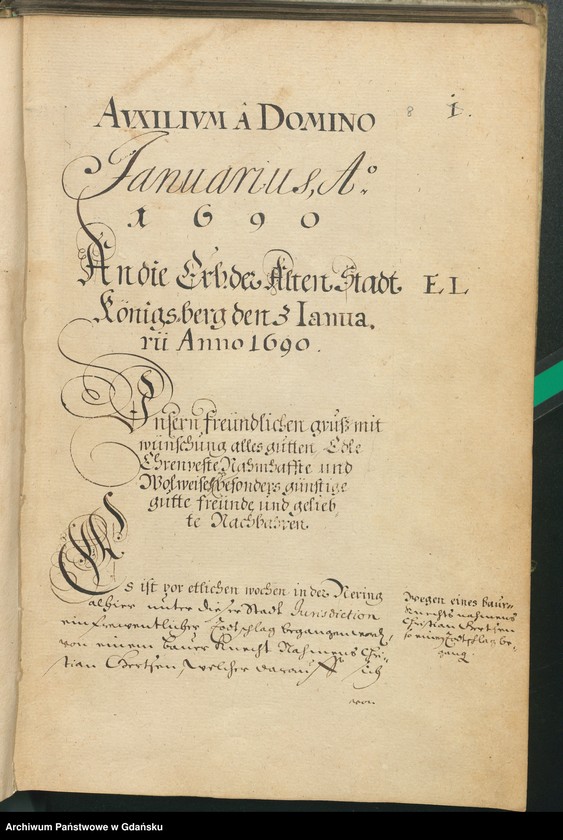 AVXILIVM Â DOMINO
8
1.
Ianuarius, A°
1690
An die Erb: der Alten Stadt
EL
Königsberg den 3 Ianua,
rii Anno 1690.
Unsern freündlichen gruß mit
wünschung alles gutten Edle
Ehrenveste Nahmhaffte und
Wolweise besonders günstige
gutte freünde und gelieb,
te Nachbahren.
Es ist vor etlichen wochen in der Nering
alhier unter dieser Stadt Jurisdiction
ein freventlicher Todtschlag begangen worden
von einem bauer Knecht Nahmens Chri-
stian Gertsen welcher darauff sich
von
wegen eines baur-
Knechts nahmens
Christian Gertsen
so einen Todtschlag be-
gang.
Archiwum Państwowe w Gdańsku